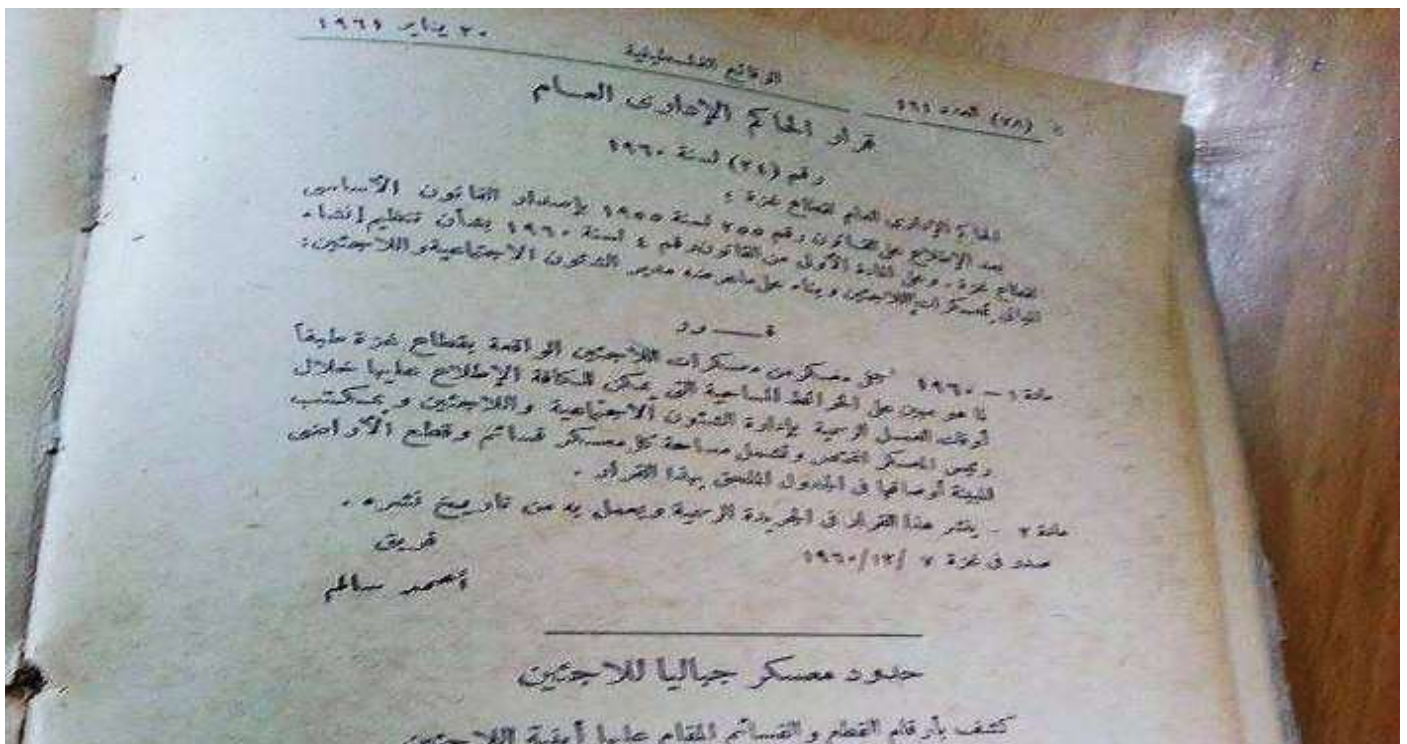 ٢٠ يناير ١٩٦١
الوقائع الفلسطينية
(٧٨) العدد
قرار الحاكم الإدارى العام
رقم (٢٤) لسنة ١٩٦٠
الحاكم الإدارى العام لقطاع غزة ؛
بعد الإطلاع على القانون رقم ٢٥٥ لسنة ١٩٥٥ بإصدار القانون الأساسى
لقطاع غزة ، وعلى المادة الأولى من القانون رقم ٤ لسنة ١٩٦٠ بشأن تنظيم إنشاء
المبانى بمعسكرات اللاجئين وبناء على ما عرضه مدير الشئون الاجتماعية واللاجئين :
قـــرر
مادة ١ – معسكر من معسكرات اللاجئين الواقعة بقطاع غزة طبقاً
لما هو مبين على الخرائط المساحية التى يمكن للكافة الإطلاع عليها خلال
أوقات العمل الرسمية بإدارة الشئون الاجتماعية واللاجئين وبمكتب
رئيس المعسكر المختص وتشمل مساحة كل معسكر قسائم وقطع الأراضى
المبينة أوصافها فى الجدول الملحق بهذا القرار .
مادة ٢ – ينشر هذا القرار فى الجريدة الرسمية ويعمل به من تاريخ نشره .
صدر فى غزة ٧ /١٢/١٩٦٠
فريق
أحمد سالم
حدود معسكر جباليا للاجئين
كشف بأرقام القطع والقسائم المقام عليها أبنية اللاجئين